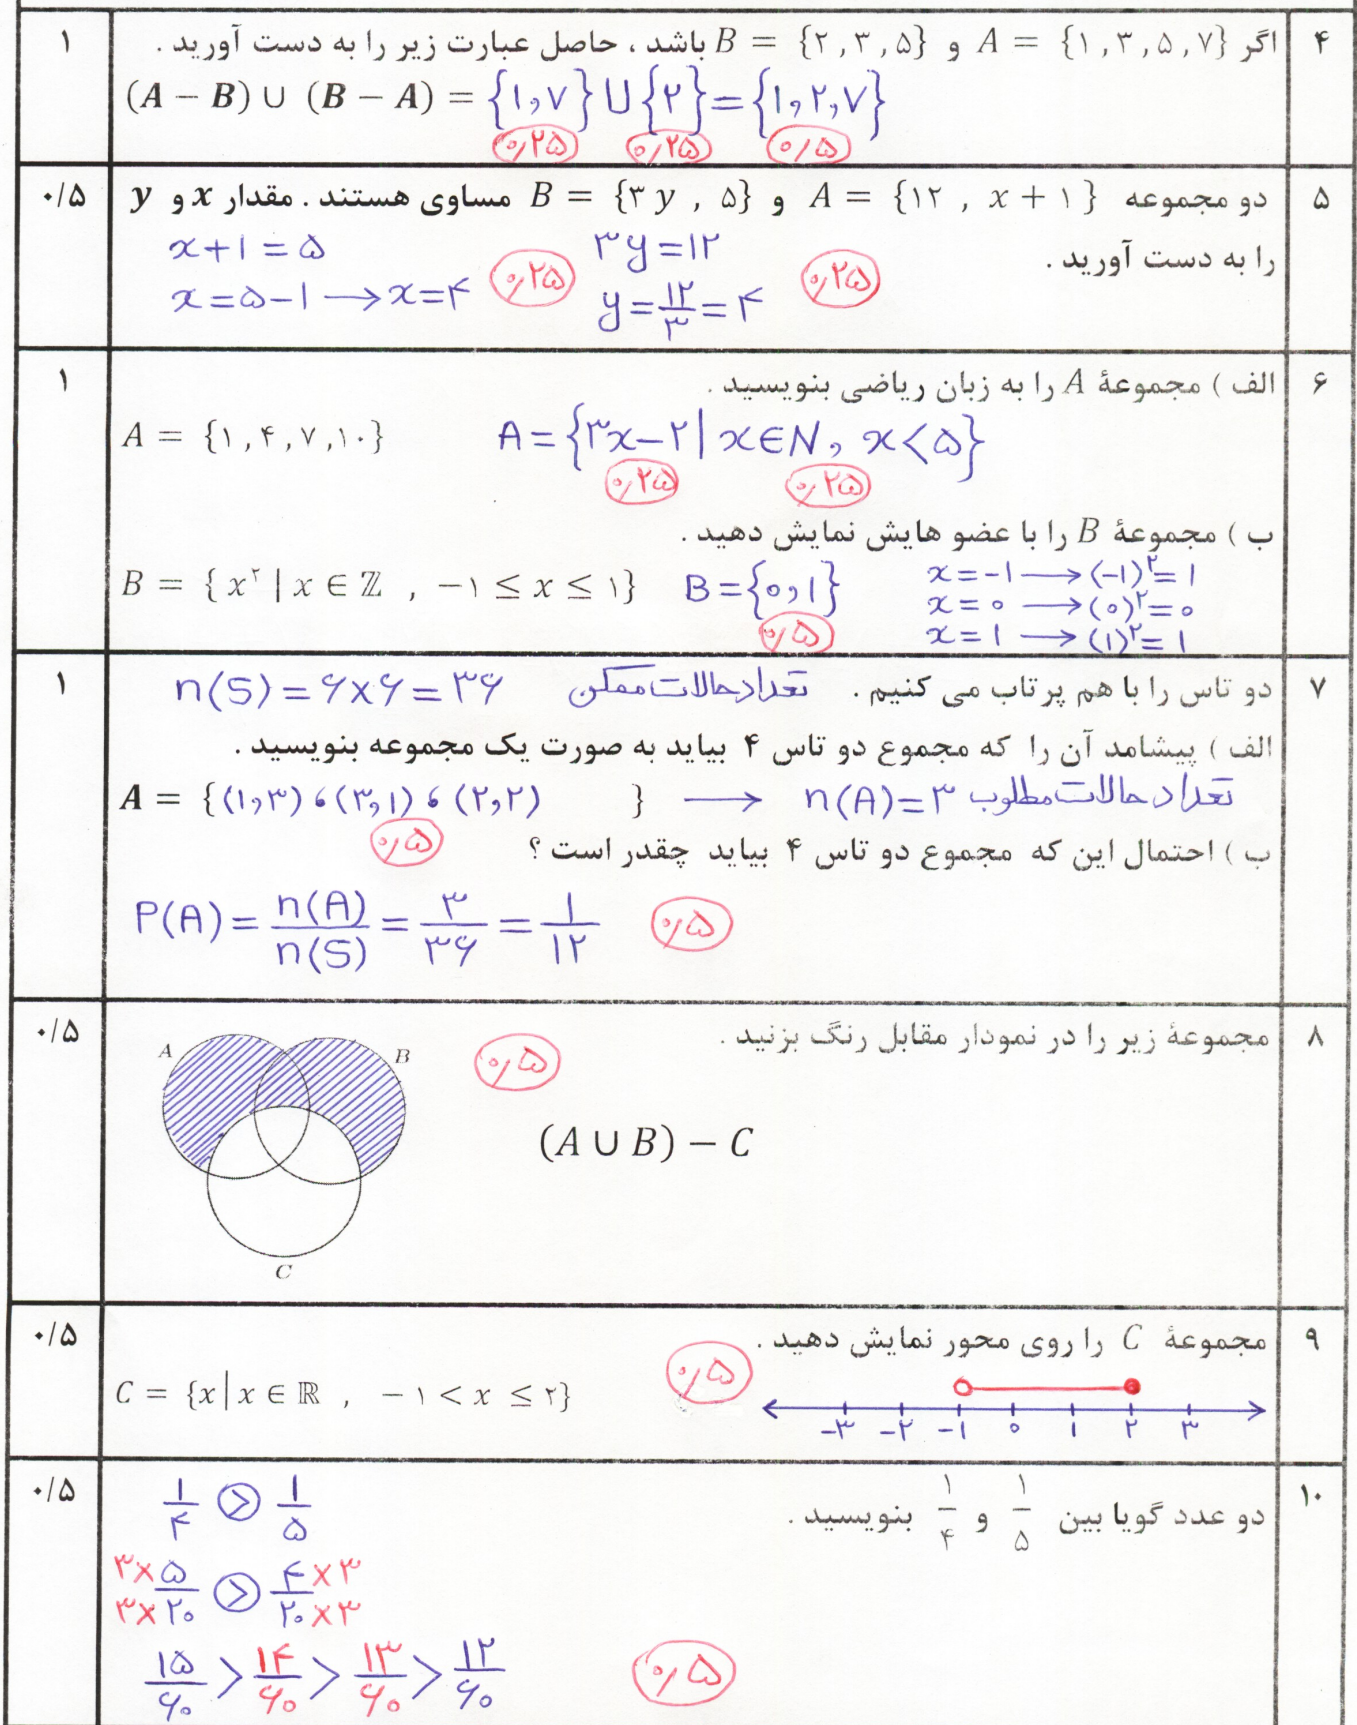 ۴ اگر A = {۱ , ۳ , ۵ , ۷} و B = {۲ , ۳ , ۵} باشد ، حاصل عبارت زیر را به دست آورید . ۱
(A − B) ∪ (B − A) = {۱,۷} ∪ {۲} = {۱,۲,۷}
۰/۲۵ ۰/۲۵ ۰/۵
۵ دو مجموعه A = {۱۲ , x + ۱} و B = {۳ y , ۵} مساوی هستند . مقدار x و y ۰/۵
را به دست آورید .
x+۱=۵ ۳y=۱۲
x=۵−۱ → x=۴ ۰/۲۵ y=۱۲/۳=۴ ۰/۲۵
۶ الف ) مجموعهٔ A را به زبان ریاضی بنویسید . ۱
A = {۱ , ۴ , ۷ , ۱۰} A={۳x−۲ | x∈N, x<۵}
۰/۲۵ ۰/۲۵
ب ) مجموعهٔ B را با عضو هایش نمایش دهید .
B = { x^۲ | x ∈ ℤ , −۱ ≤ x ≤ ۱} B={۰,۱} x=−۱ → (−۱)^۲=۱
x=۰ → (۰)^۲=۰
۰/۵ x=۱ → (۱)^۲=۱
۷ دو تاس را با هم پرتاب می کنیم . تعداد حالات ممکن n(S)=۶×۶=۳۶ ۱
الف ) پیشامد آن را که مجموع دو تاس ۴ بیاید به صورت یک مجموعه بنویسید .
A = {(۱,۳) ، (۳,۱) ، (۲,۲) } → n(A)=۳ تعداد حالات مطلوب
۰/۵
ب ) احتمال این که مجموع دو تاس ۴ بیاید چقدر است ؟
P(A)= n(A)/n(S) = ۳/۳۶ = ۱/۱۲ ۰/۵
۸ مجموعهٔ زیر را در نمودار مقابل رنگ بزنید . ۰/۵
A B ۰/۵
(A ∪ B) − C
C
۹ مجموعهٔ C را روی محور نمایش دهید . ۰/۵
C = {x | x ∈ ℝ , −۱ < x ≤ ۲} ۰/۵
−۳ −۲ −۱ ۰ ۱ ۲ ۳
۱۰ دو عدد گویا بین ۱/۵ و ۱/۴ بنویسید . ۰/۵
۱/۴ > ۱/۵
۳×۵/۳×۲۰ > ۴×۳/۲۰×۳
۱۵/۶۰ > ۱۴/۶۰ > ۱۳/۶۰ > ۱۲/۶۰ ۰/۵